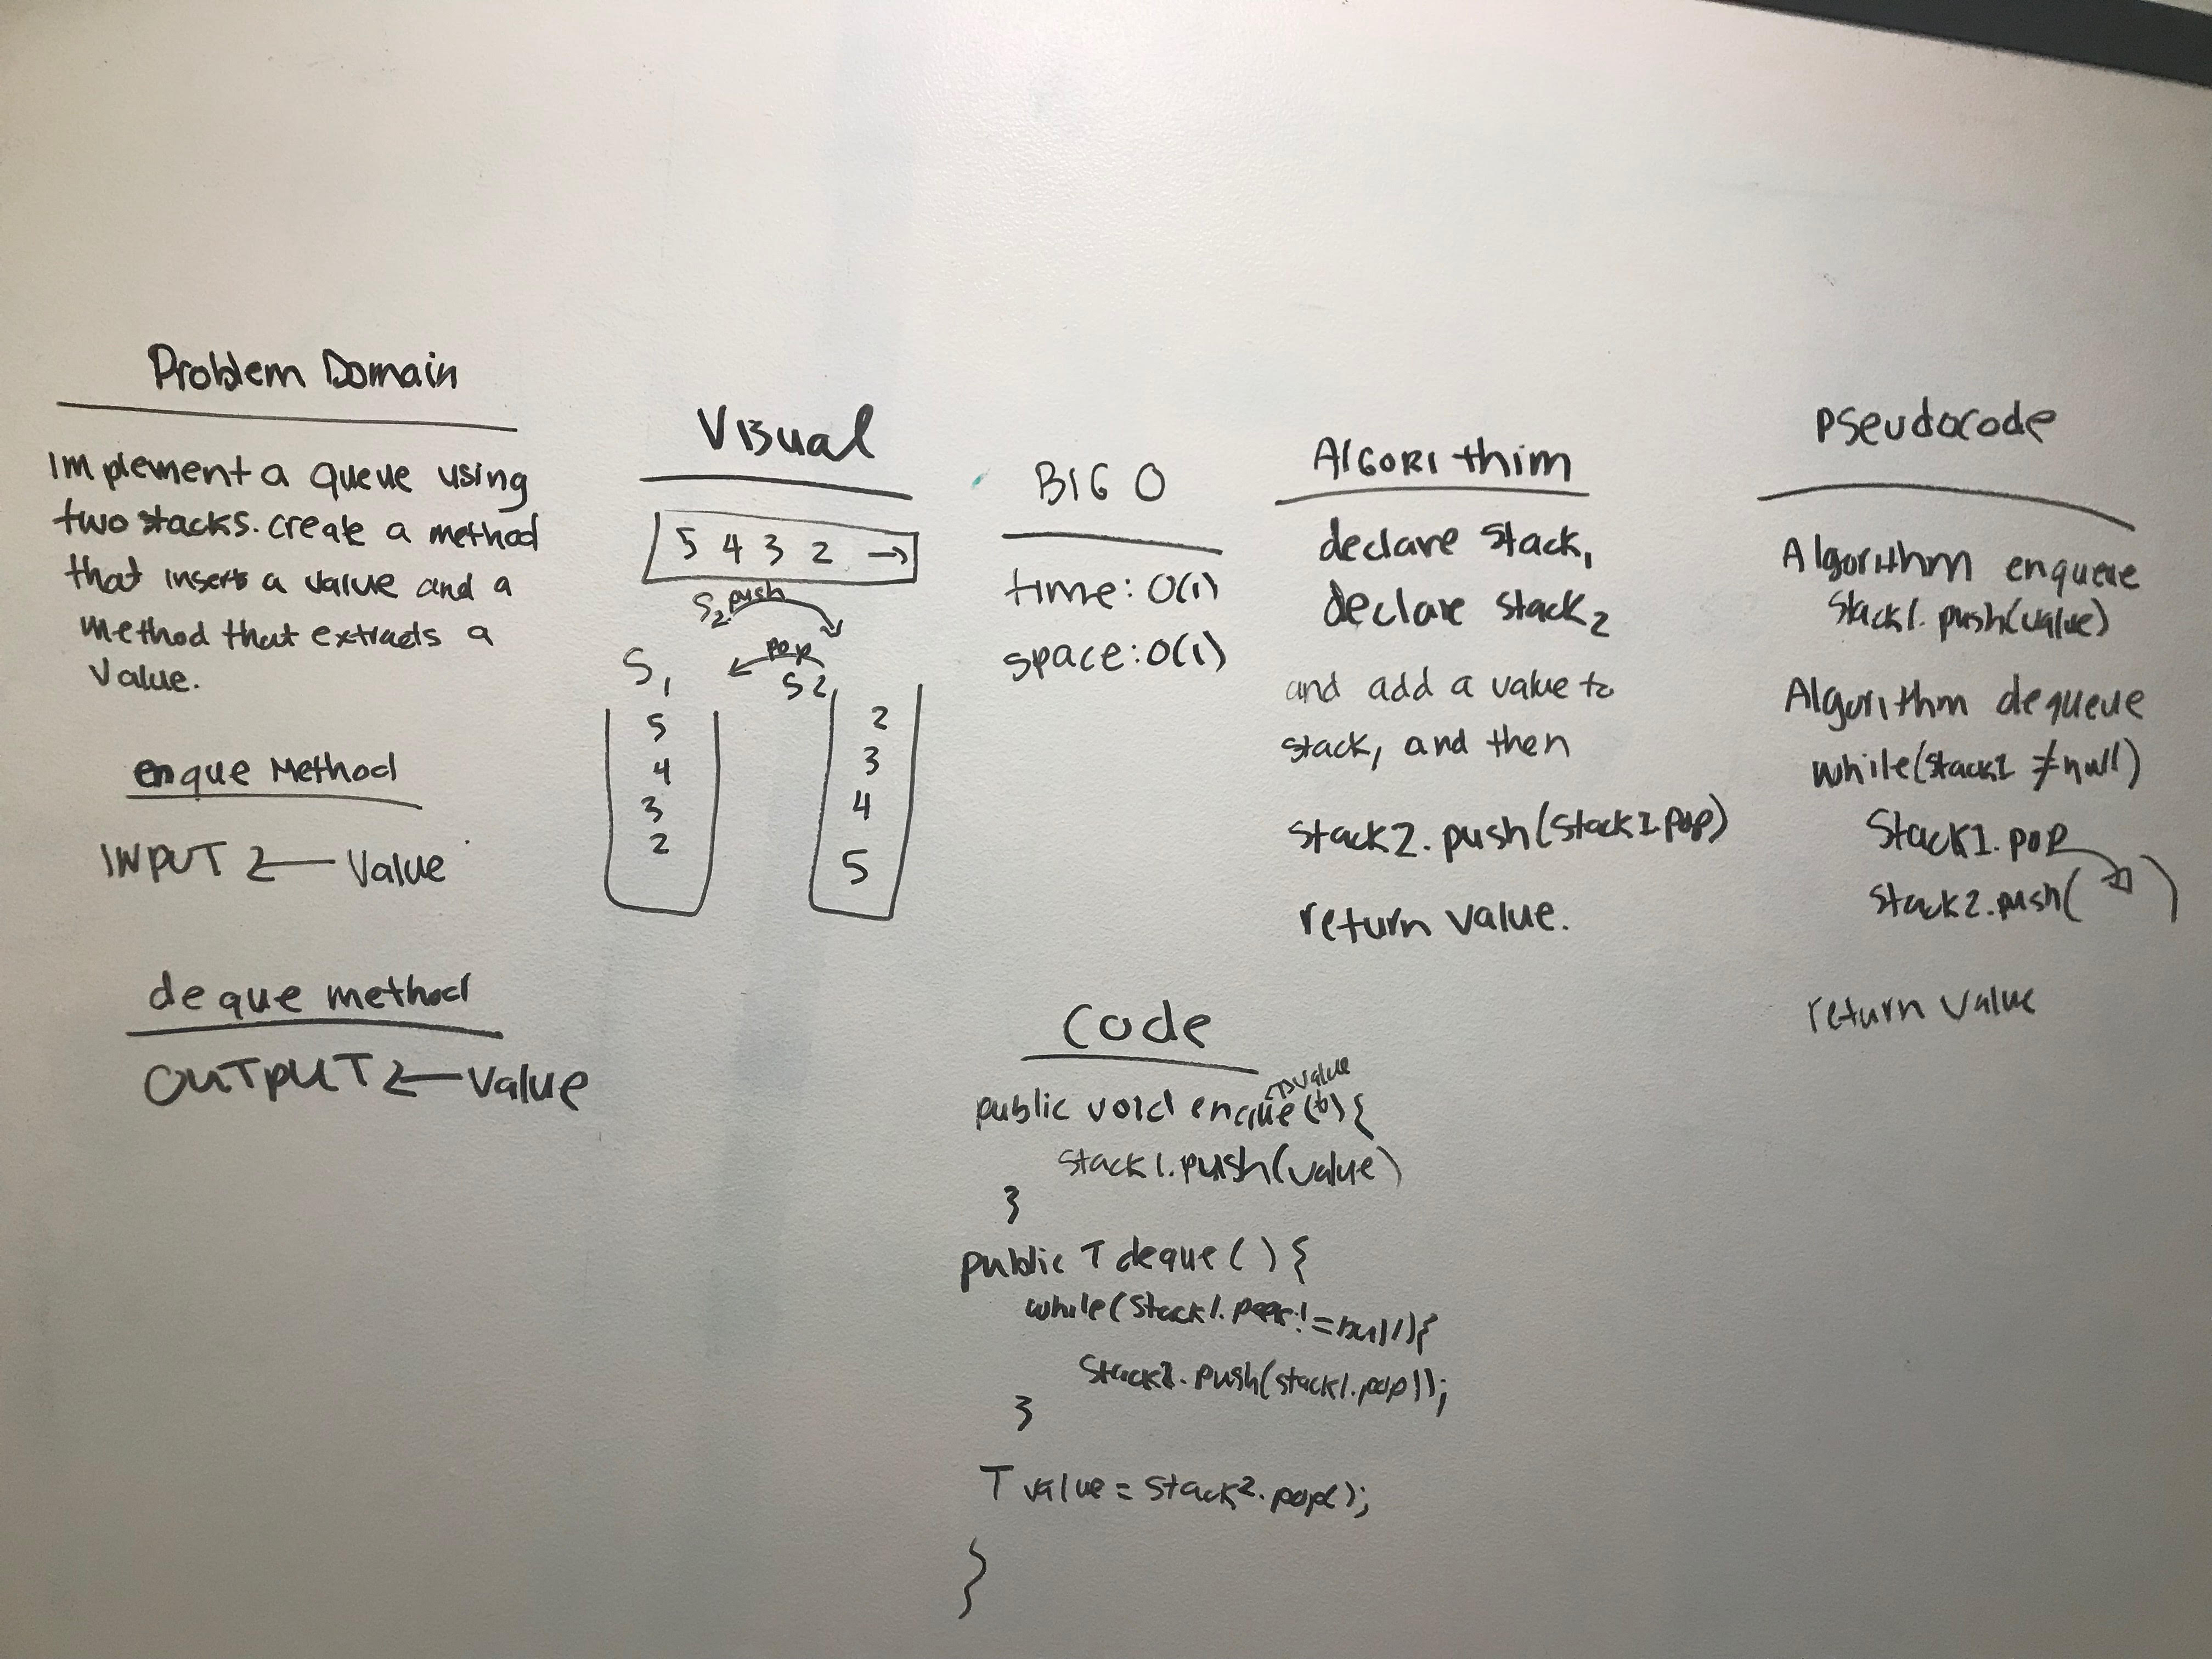 Problem Domain
Implement a queue using
two stacks. create a method
that inserts a value and a
method that extracts a
value.
enque Method
INPUT ← Value
deque method
OUTPUT ← Value
Visual
5 4 3 2 →
S2 push
pop
S1
S2
5
4
3
2
2
3
4
5
BIG O
time: O(1)
space: O(1)
AlGORIthim
declare stack1
declare stack2
and add a value to
stack, and then
stack2.push(stack1.pop)
return value.
Pseudocode
Algorithm enqueue
stack1.push(value)
Algorithm dequeue
while(stack1 ≠ null)
Stack1.pop
stack2.push( )
return value
Code
value
public void enque(t){
stack1.push(value)
}
public T deque( ) {
while(stack1.peek!=null){
stack2.push(stack1.pop));
}
T value = stack2.pop();
}